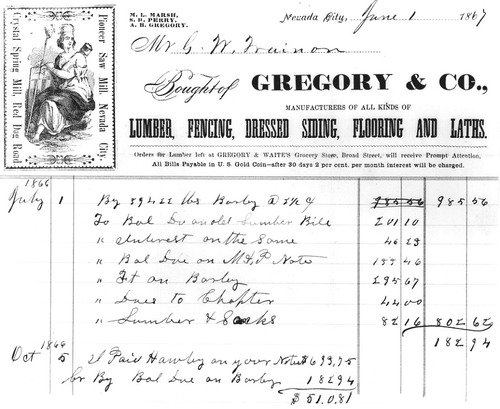 M. L. MARSH,
S. R. PERRY,
A. B. GREGORY.
Nevada City, June 1 1867
Pioneer Saw Mill, Nevada City.
Crystal Spring Mill, Red Dog Road
Mr C. W. Trainon
Bought of GREGORY & CO.,
MANUFACTURERS OF ALL KINDS OF
LUMBER, FENCING, DRESSED SIDING, FLOORING AND LATHS.
Orders for Lumber left at GREGORY & WAITE'S Grocery Store, Broad Street, will receive Prompt Attention.
All Bills Payable in U. S. Gold Coin—after 30 days 2 per cent. per month interest will be charged.
1866
July 1 By lbs Barley @ 985 56 985 56
To Bal Due on old Lumber Bill 201 10
" Interest on the Same
" Bal Due on Note
" Ft on Barley 295 67
" Dues to Chapter 44 00
" Lumber & 82 16 802 62
182 94
1866
Oct 5 Paid Hawley on your Note $ 693,75
Cr By Bal Due on Barley 182 94
$ 510,81